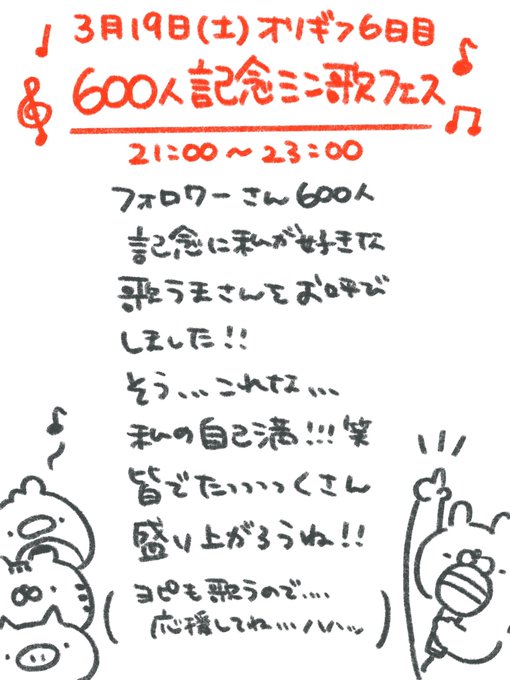 3月19日(土)オリギフ6日目
600人記念ミニ歌フェス
21:00～23:00
フォロワーさん600人
記念に私が好きな
歌うまさんをお呼び
しました!!
そう...これな...
私の自己満!!!笑
皆でたっっっっくさん
盛り上がろうね!!
(ヨピも歌うので....
応援してね...ハハッ)